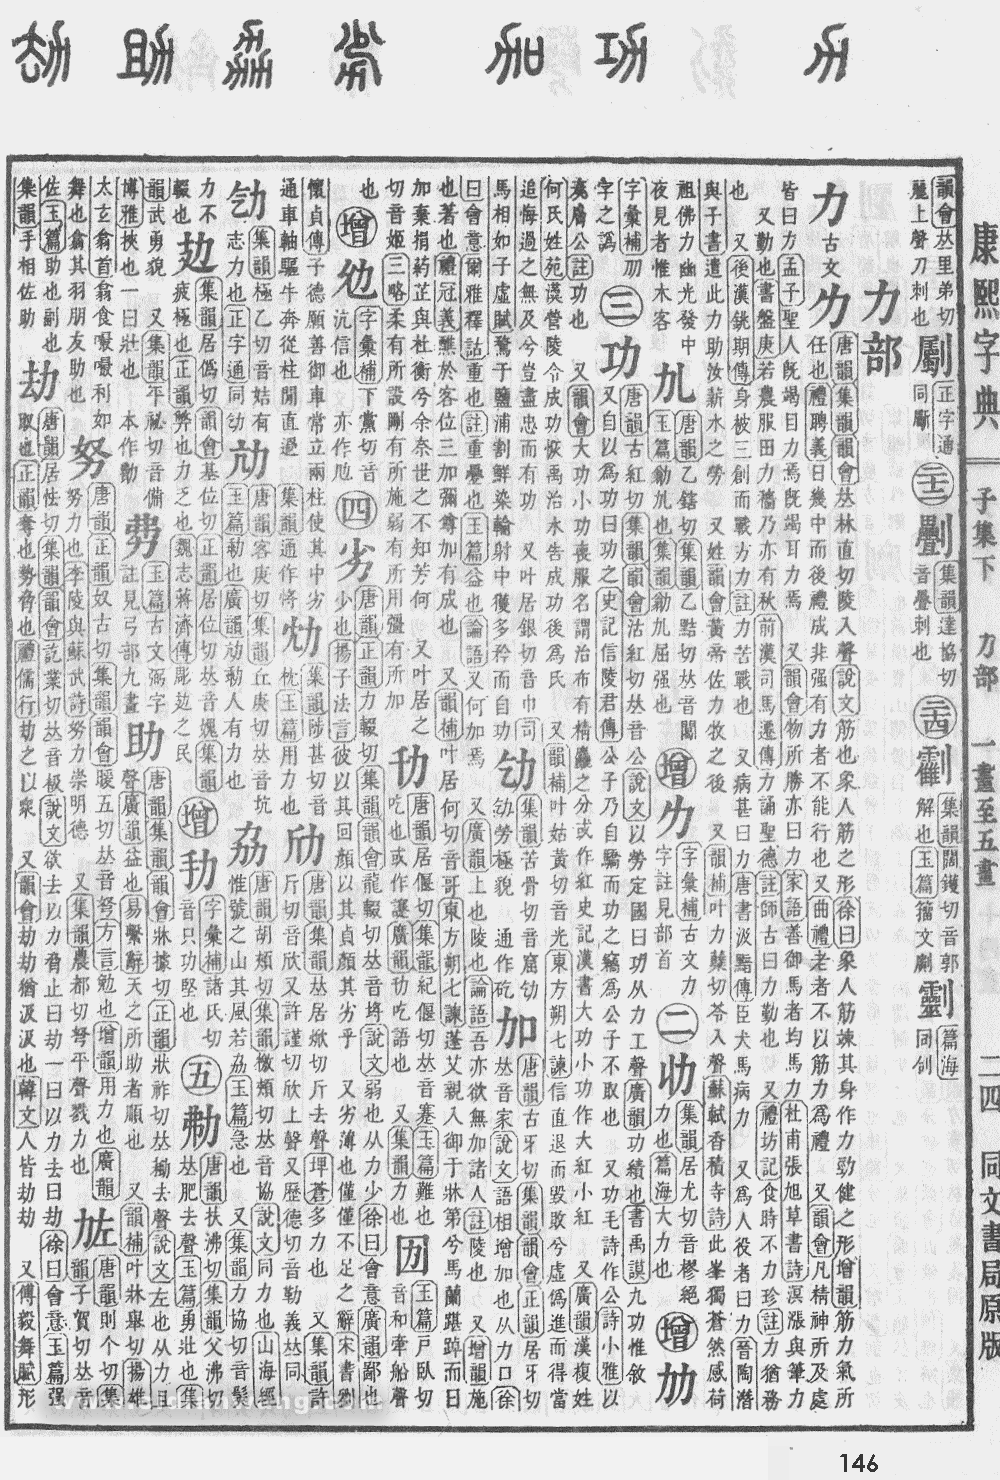 力 功 加 劦 助 劫
康熙字典 子集下 力部 一畫至五畫 二四 同文書局原版
韻會𠀤里弟切
麗上聲刀刺也
正字通
同斸
集韻達協切
音疊刺也
集韻闊鑊切音郭
解也玉篇籀文劘
篇海
同劊
力部
力
古文
唐韻集韻韻會𠀤林直切陵入聲說文筋也象人筋之形徐曰象人筋竦其身作力勁健之形增韻筋力氣所
任也禮聘義日幾中而後禮成非强有力者不能行也又曲禮老者不以筋力爲禮 又韻會凡精神所及處
皆曰力孟子聖人旣竭目力焉旣竭耳力焉 又韻會物所勝亦曰力家語善御馬者均馬力杜甫張旭草書詩溟漲與筆力
又勤也書盤庚若農服田力穡乃亦有秋前漢司馬遷傳力誦聖德註師古曰力勤也 又禮坊記食時不力珍註力猶務
也 又後漢銚期傳身被三創而戰方力註力苦戰也 又病甚曰力唐書汲黯傳臣犬馬病力 又爲人役者曰力晉陶潛
與子書遣此力助汝薪水之勞 又姓韻會黃帝佐力牧之後 又韻補叶力蘖切苓入聲蘇軾香積寺詩此峯獨蒼然感荷
祖佛力幽光發中
夜見者惟木客
劜
唐韻乙鎋切集韻乙黠切𠀤音闑
玉篇勮劜也集韻勮劜屈强也
增
字彙補古文力
字註見部首
二
集韻居尤切音樛絕
力也篇海大力也
增
劧
字彙補刅
字之譌
三
功
唐韻古紅切集韻韻會沽紅切𠀤音公說文以勞定國曰功从力工聲廣韻功績也書禹謨九功惟敘
又自以爲功曰功之史記信陵君傳公子乃自驕而功之竊爲公子不取也 又功毛詩作公詩小雅以
奏膚公註功也 又韻會大功小功喪服名謂治布有精麤之分或作紅史記漢書大功小功作大紅小紅 又廣韻漢複姓
何氏姓苑漢營陵令成功恢禹治水告成功後爲氏 又韻補叶姑黃切音光東方朔七諫信直退而毀敗兮虛僞進而得當
追悔過之無及兮豈盡忠而有功 又叶居銀切音巾司
馬相如子虛賦騖于鹽浦割鮮染輪射中獲多矜而自功
劮
集韻苦骨切音窟
劮勞極貌 通作矻
加
唐韻古牙切集韻韻會正韻居牙切
𠀤音家說文語相增加也从力口徐
曰會意爾雅釋詁重也註重疊也玉篇益也論語又何加焉 又廣韻上也陵也論語吾亦欲無加諸人註陵也 又增韻施
也著也禮冠義醮於客位三加彌尊加有成也 又韻補叶居何切音哥東方朔七諫蓬艾親入御于牀笫兮馬蘭踸踔而日
加棄捐葯芷與杜衡兮余奈世之不知芳何 又叶居之
切音姬三略柔有所設剛有所施弱有所用彊有所加
劷
唐韻居偃切集韻紀偃切𠀤音蹇玉篇難也
吃也或作讓廣韻劷吃語也 又集韻力也
玉篇戸臥切
音和牽船聲
也
增
劮
字彙補下黨切音
沆信也 亦作劥
四
劣
唐韻正韻力輟切集韻韻會龍輟切𠀤音埒說文弱也从力少徐曰會意廣韻鄙也
少也揚子法言彼以其回顏以其貞顏其劣乎 又劣薄也僅僅不足之辭宋書劉
懷貞傳子德願善御車常立兩柱使其中劣
通車軸驅牛奔從柱閒直過 集韻通作㝷
集韻陟甚切音
枕玉篇用力也
劤
唐韻集韻𠀤居焮切斤去聲埤蒼多力也 又集韻許
斤切音欣又許謹切欣上聲又歷德切音勒義𠀤同
劮
集韻極乙切音姞有
志力也正字通同劮
劥
唐韻客庚切集韻丘庚切𠀤音坑
玉篇勑也廣韻劥勷人有力也
劦
唐韻胡頰切集韻檄頰切𠀤音協說文同力也山海經
惟號之山其風若劦玉篇急也 又集韻力協切音䶨
力不
輟也
集韻居僞切韻會基位切正韻居位切𠀤音媿集韻
疲極也正韻弊也力乏也魏志蔣濟傳彫攰之民
增
字彙補諸氏切
音只功堅也
五
唐韻扶沸切集韻父沸切
𠀤肥去聲玉篇勇壯也集
韻武勇貌 又集韻平祕切音備
博雅挾也一曰壯也 本作勴
玉篇古文弼字
註見弓部九畫
助
唐韻集韻韻會牀據切正韻狀祚切𠀤耡去聲說文左也从力且
聲廣韻益也易繫辭天之所助者順也 又韻補叶牀舉切揚雄
太玄翕首翕食嘬嘬利如
舞也翕其羽朋友助也
努
唐韻正韻奴古切集韻韻會暖五切𠀤音弩方言勉也增韻用力也廣韻
努力也李陵與蘇武詩努力崇明德 又集韻農都切弩平聲戮力也
唐韻則个切集
韻子賀切𠀤音
佐玉篇助也副也
集韻手相佐助
劫
唐韻居怯切集韻韻會訖業切𠀤音极說文欲去以力脅止曰劫一曰以力去曰劫徐曰會意玉篇强
取也正韻奪也勢脅也禮儒行劫之以衆 又韻會劫劫猶汲汲也韓文人皆劫劫 又傅毅舞賦形
146